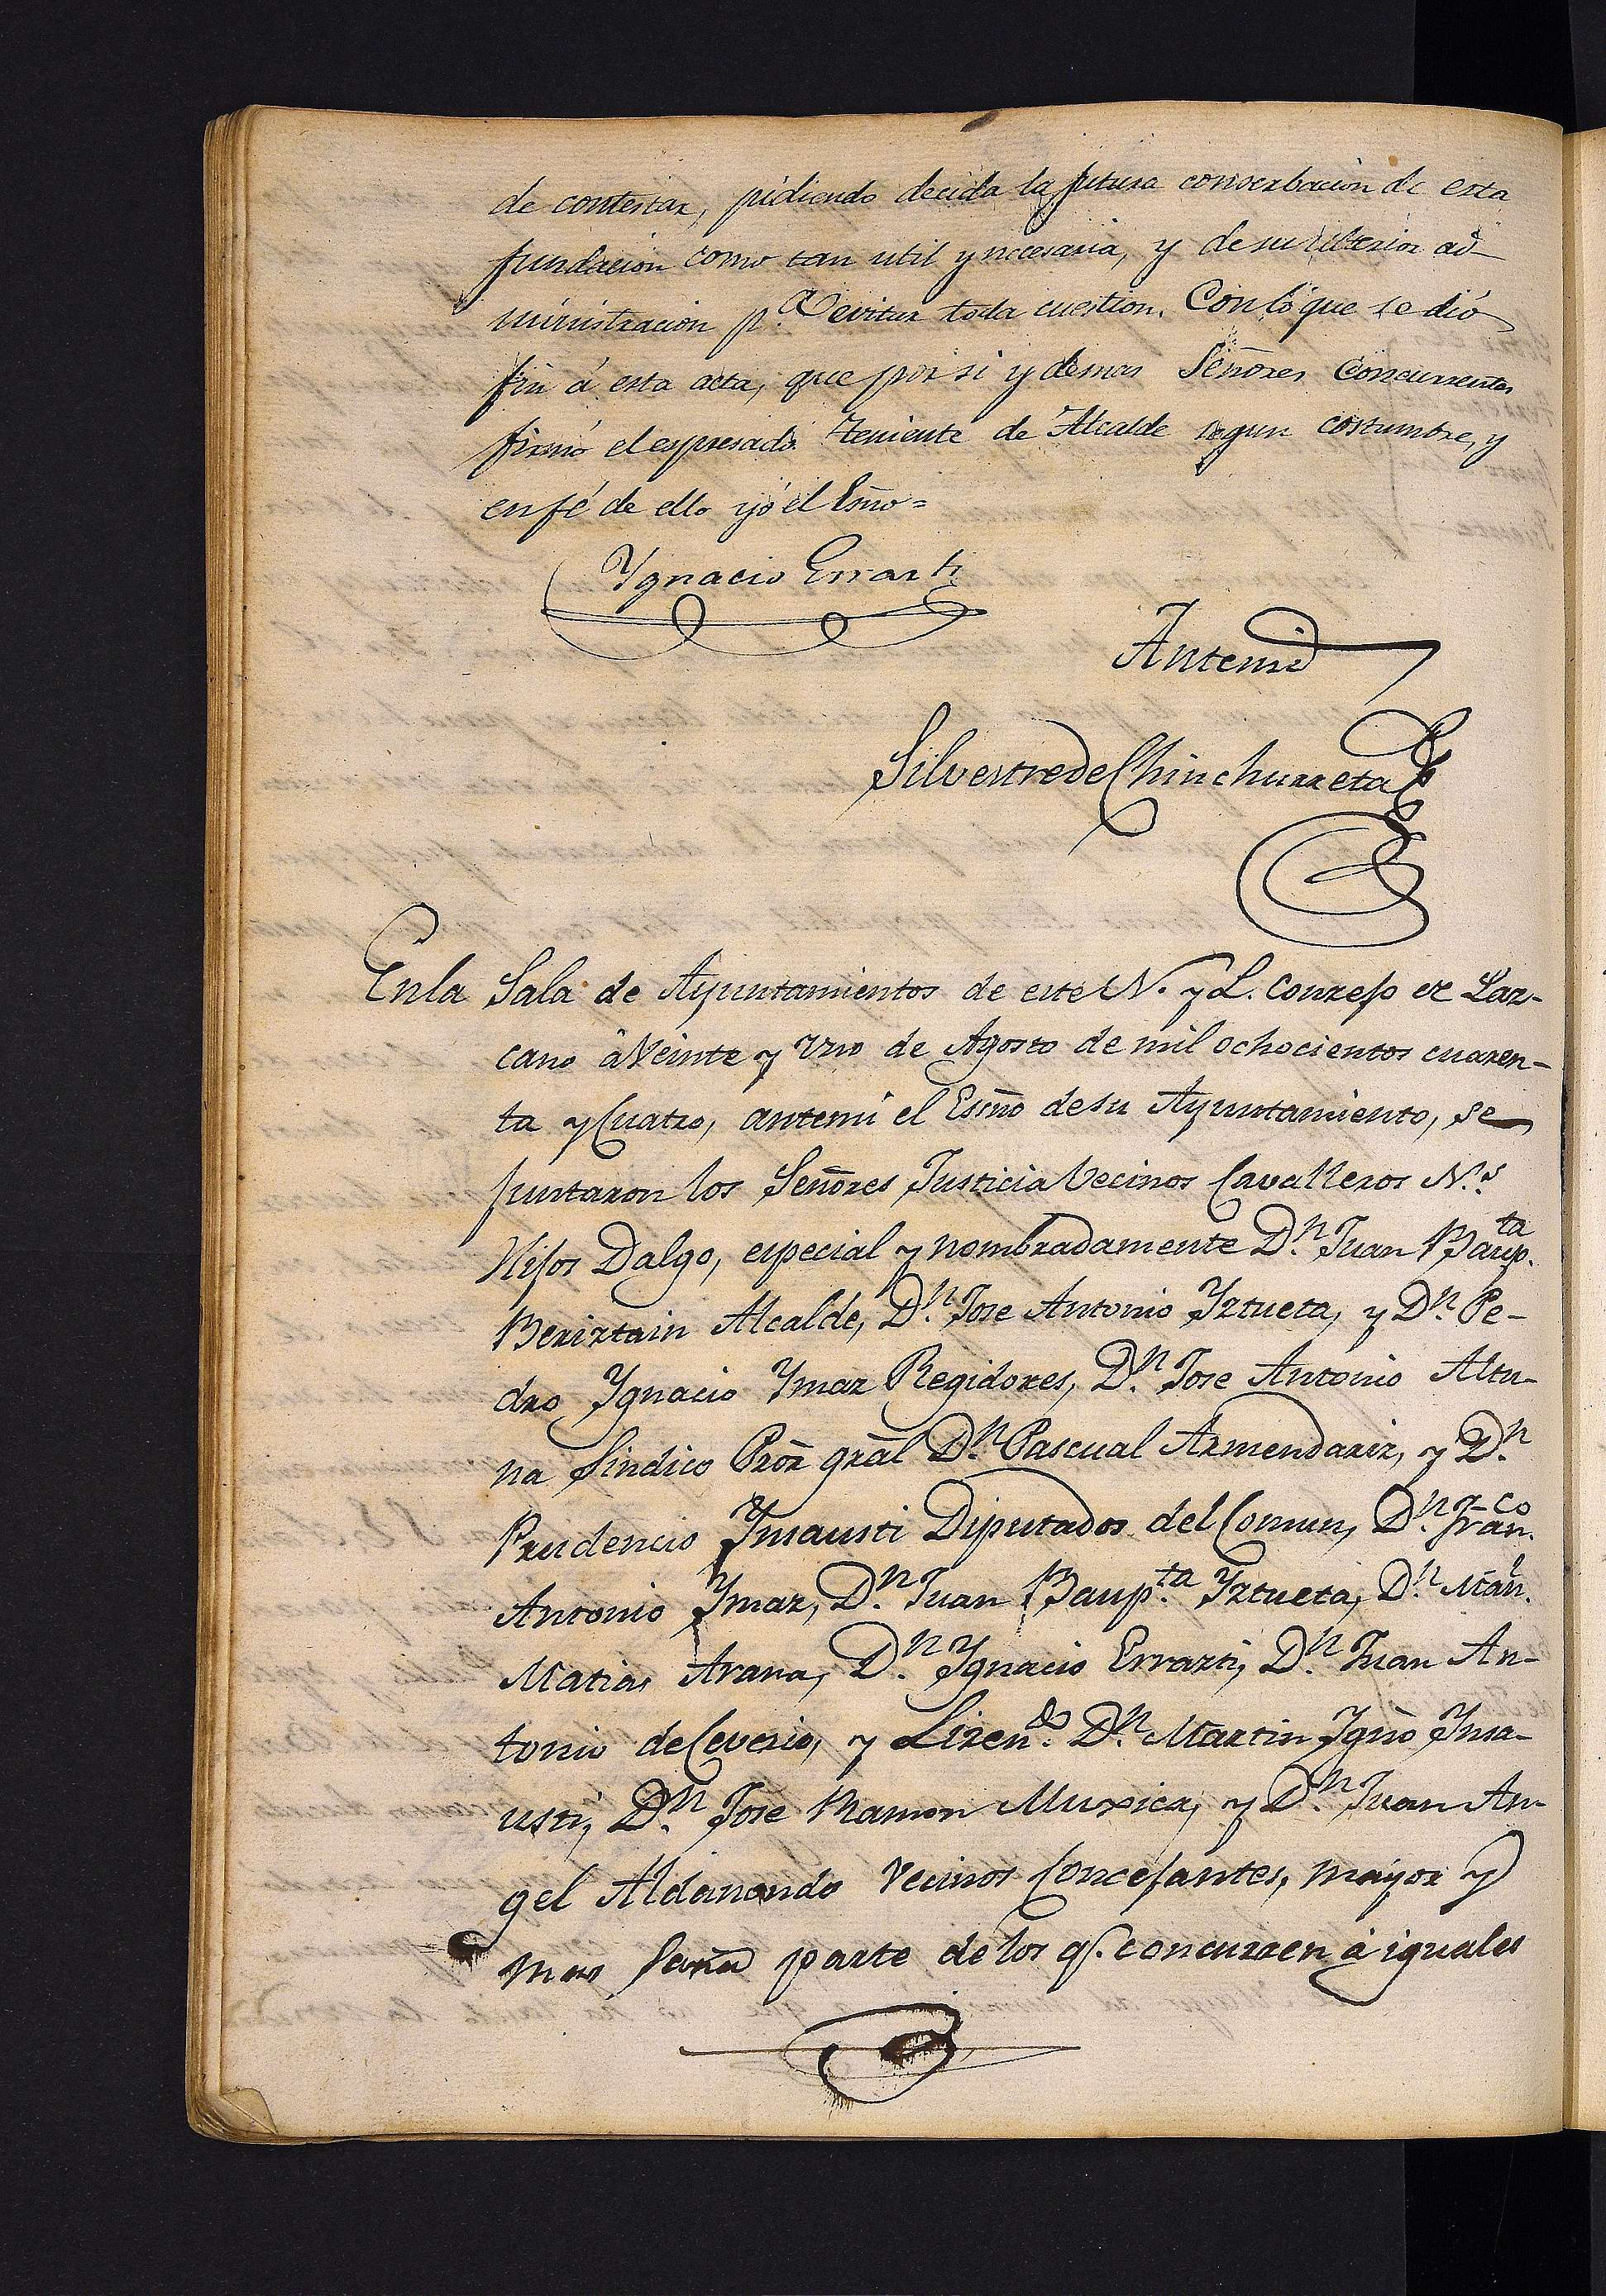 de contestar, pidiendo decida la futura conserbacion de esta
fundacion como tan util y necesaria, y de su ulterior ad-
ministracion p.a evitar toda cuestion. Con lo que se dió
fin á esta acta, que por si y demas Señores Concurrentes
firmó el espresado Teniente de Alcalde segun costumbre, y
en fé de ello yó el Esño=
Ygnacio Errazti
Antemi
Silvestre de Chinchurreta
En la Sala de Ayuntamientos de este N. y L. Conzejo de Laz-
cano à Veinte y Uno de Agosto de mil ochocientos cuaren-
ta y Cuatro, antemi el Esc̃no de su Ayuntamiento, se
juntaron los Señores Justicia Vecinos Cavalleros N.s
Hijos Dalgo, especial y nombradamente D.n Juan Baup.ta
Beriztain Alcalde, D.n Jose Antonio Yztueta, y D.n Pe-
dro Ygnacio Ymaz Regidores, D.n Jose Antonio Altu-
na Sindico Prõr grãl D.n Pascual Armendariz, y D.n
Prudencio Ynsausti Diputados del Comun, D.n Fran.co
Antonio Ymaz, D.n Juan Baup.ta Yztueta, D.n Mãn.
Matias Arana, D.n Ygnacio Errazti, D.n Juan An-
tonio de Ceverio, y Lizen.do D.n Martin Ygño Ynsa-
usti, D.n Jose Ramon Muxica, y D.n Juan An-
gel Aldanondo Vecinos Concejantes, mayor y
mas sana parte de los q.e concurren à iguales